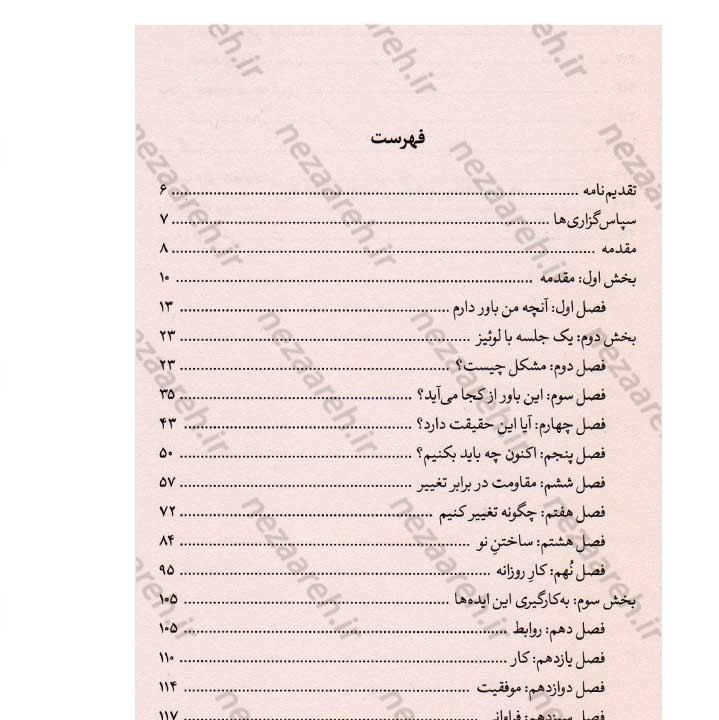 فهرست
تقدیم‌نامه ........ ۶
سپاس‌گزاری‌ها ........ ۷
مقدمه ........ ۸
بخش اول: مقدمه ........ ۱۰
فصل اول: آنچه من باور دارم ........ ۱۳
بخش دوم: یک جلسه با لوئیز ........ ۲۳
فصل دوم: مشکل چیست؟ ........ ۲۳
فصل سوم: این باور از کجا می‌آید؟ ........ ۳۵
فصل چهارم: آیا این حقیقت دارد؟ ........ ۴۳
فصل پنجم: اکنون چه باید بکنیم؟ ........ ۵۰
فصل ششم: مقاومت در برابر تغییر ........ ۵۷
فصل هفتم: چگونه تغییر کنیم ........ ۷۲
فصل هشتم: ساختنِ نو ........ ۸۴
فصل نُهم: کارِ روزانه ........ ۹۵
بخش سوم: به‌کارگیری این ایده‌ها ........ ۱۰۵
فصل دهم: روابط ........ ۱۰۵
فصل یازدهم: کار ........ ۱۱۰
فصل دوازدهم: موفقیت ........ ۱۱۴
فصل سیزدهم: فراوانی ........ ۱۱۷
nezaareh.ir